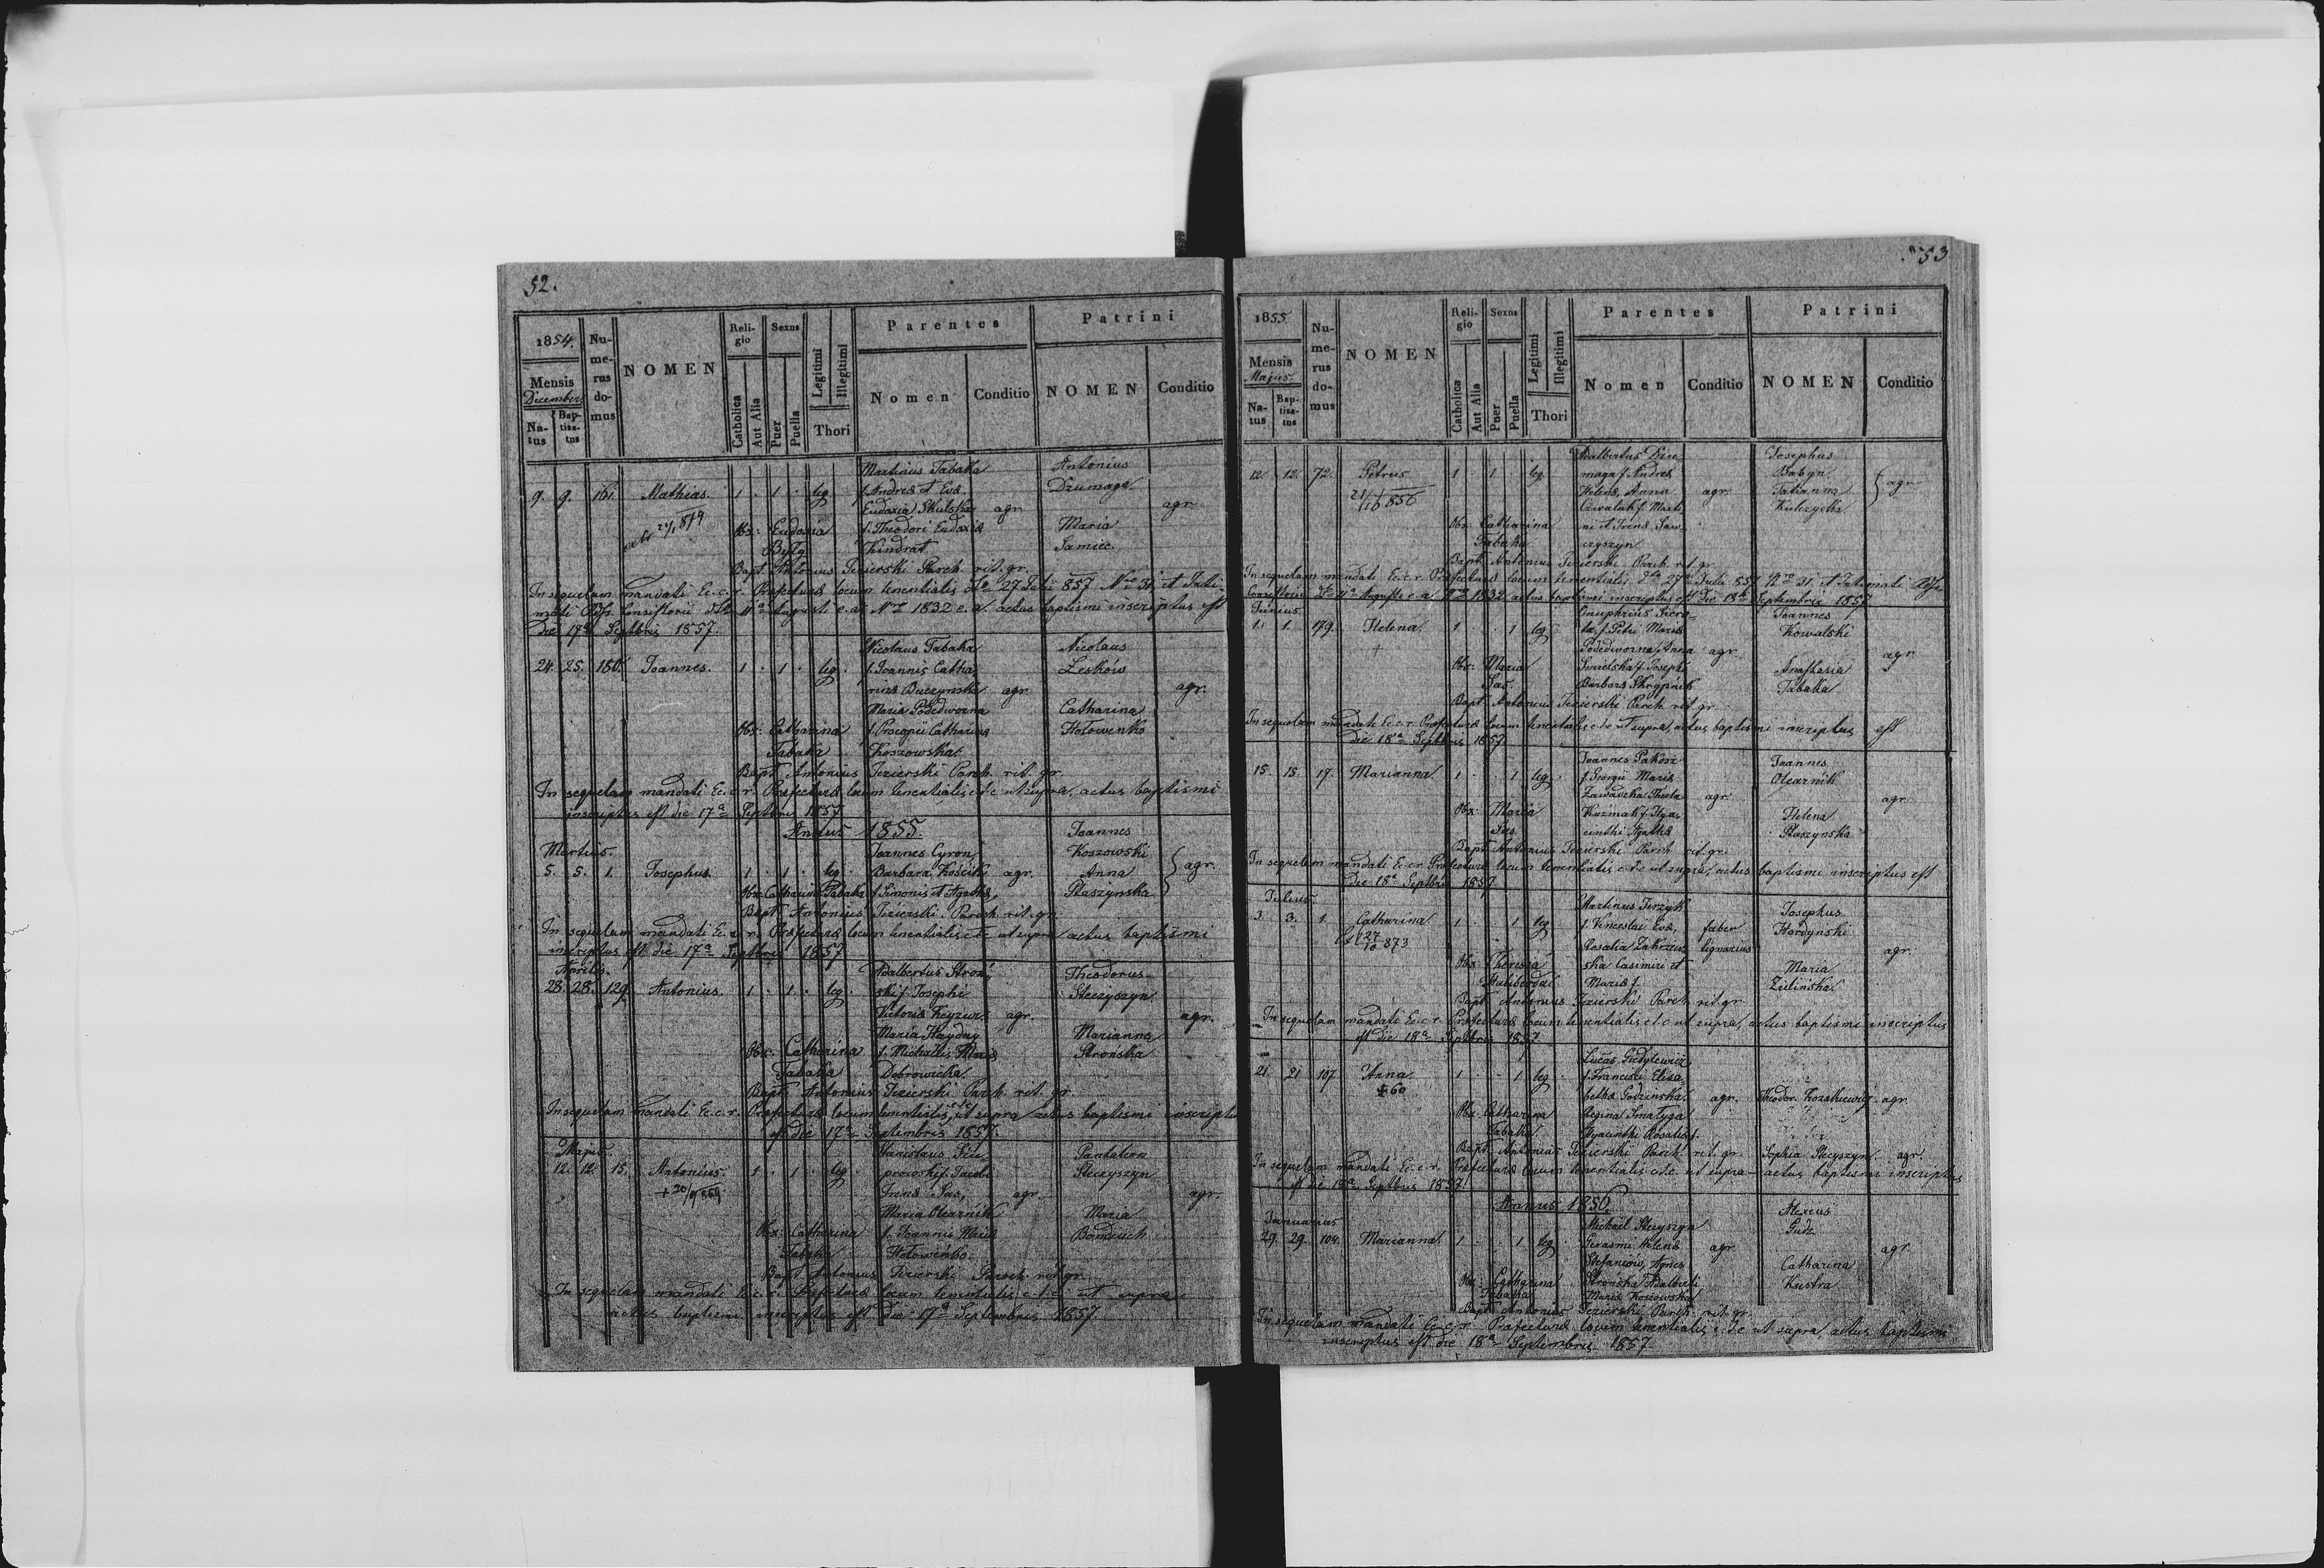 52.
1854.
Mensis
December
Na-
tus
Bap-
tisa-
tus
Nu-
me-
rus
do-
mus
NOMEN
Reli-
gio
Catholica
Aut Alia
Sexus
Puer
Puella
Legitimi
Illegitimi
Thori
Parentes
Nomen
Conditio
Patrini
NOMEN
Conditio
Martinus Tabaka Antonius
9. 9. 161. Mathias. 1 . 1 . leg. f. Andreæ et Evæ Dzumaga.
Eudoxia Skulska agr. agr.
Obs: Eudoxia f. Theodori Eudoxiæ Maria
Byly Kindrat Samiec.
Bapt. Antonius Jezierski Parch. rit. gr.
In sequelam mandati C. c. r. Præfecturæ locum tenentialis dto 27 Julii 857 Nro 31, et Inti-
mati Rdssi Consistorii dto 11a Augusti e. a. Nro 1832 e. a. actus baptismi inscriptus est
die 17a Septbris 1857.
Nicolaus Tabaka Nicolaus
24. 25. 180. Joannes. 1 . 1 . leg. f. Joannis Catha- Leskow
rinæ Buczynska agr. agr.
Maria Podedworna Catharina
Obs: Catharina f. Procopii Catharinæ Hołowenko
Tabaka Koszowska.
Bapt. Antonius Jezierski Parch. rit. gr.
In sequelam mandati C. c. r. Præfecturæ locum tenentialis c. d. c. ut supra, actus baptismi
inscriptus est die 17a Septbris 1857
Annus 1855. Joannes
Martius. Joannes Cyron Koszowski
5. 5. 1. Josephus 1 . 1 . leg. Barbara Kościki agr. Anna agr.
Obs: Catharina Tabaka f. Simonis et Agathæ Płaszynska
Bapt. Antonius Jezierski Paroch. rit. gr.
In sequelam mandati C. c. r. Præfecturæ locum tenentialis c. d. c. ut supra actus baptismi
inscriptus est die 17a Septbris 1857
Aprilis. Adalbertus Stroń- Theodorus
28. 28. 129. Antonius. 1 . 1 . leg. ski f. Josephi Steczyszyn
agr. agr.
Maria Hayday Marianna
Obs: Catharina f. Michaelis Mariæ Stronska
Tabaka Dobrowicka.
Bapt. Antonius Jezierski Parch. rit. gr.
In sequelam mandati C. c. r. Præfecturæ locum tenentialis, ut supra actus baptismi inscriptus
est die 17a Septembris 1857.
Majus. Stanislaus Pantaleon
12. 12. 15. Antonius. 1 . 1 . leg. Steczyszyn
Irenæ Sas, agr. agr.
Maria Olearnik Maria
Obs: Catharina f. Joannis Mariæ Bondiuch
Tabaka Hołowenko.
Bapt. Antonius Jezierski Paroch. rit. gr.
In sequelam mandati C. c. r. Præfecturæ locum tenentialis c. d. c. ut supra
actus baptismi inscriptus est die 17a Septembris 1857.
53
1855
Mensis
Majus.
Na-
tus
Bap-
tisa-
tus
Nu-
me-
rus
do-
mus
NOMEN
Reli-
gio
Catholica
Aut Alia
Sexus
Puer
Puella
Legitimi
Illegitimi
Thori
Parentes
Nomen
Conditio
Patrini
NOMEN
Conditio
Adalbertus Dzu- Josephus
12. 12. 72. Petrus 1 . 1 . leg. maga f. Andreæ Babyn
Helenæ, Anna agr. Tatianna agr.
Czwalak f. Marti- Kulczycka
Obs: Catharina ni et Irenæ Saw-
Tabaka czyszyn
Bapt. Antonius Jezierski Parch. rit. gr.
In sequelam mandati C. c. r. Præfecturæ locum tenentialis dto 27a Julii 857 Nro 31. et Intimati Rdssi
Consistorii dto 11a Augusti e. a. Nro 1832 actus baptismi inscriptus est die 18a Septembris 1857
Junius. Onuphrius Joannes
1. 1. 179. Helena. 1 . . 1 leg. f. Petri Mariæ Kowalski
Podedworna, Anna agr. agr.
Obs: Maria f. Josephi Anastasia
Sas. Barbaræ Skrypnik Tabaka
Bapt. Antonius Jezierski Parch. rit. gr.
In sequelam mandati C. c. r. Præfecturæ locum tenentialis c. d. c. ut supra, actus baptismi inscriptus est
die 18a Septbris 1857
Joannes Joannes
15. 15. 17. Marianna 1 . . 1 leg. f. Georgii Mariæ Olearnik
Zawadzka Thecla agr. agr.
Obs: Maria Kuzmak f. Hya- Helena
Sas. cinthi Agathæ Płaszynska
Bapt. Antonius Jezierski Parch. rit. gr.
In sequelam mandati C. c. r. Præfecturæ locum tenentialis c. d. c. ut supra, actus baptismi inscriptus est
die 18a Septbris 1857
Julius. Martinus Jerzyk Josephus
3. 3. 1. Catharina 1 . . 1 leg. f. Venceslai Evæ, faber Hordynski
Rosalia Zakrzew- lignarius agr.
Obs: Theressa ska Casimiri et Maria
Mariæ f. Zielinska
Bapt. Antonius Jezierski Parch. rit. gr.
In sequelam mandati C. c. r. Præfecturæ locum tenentialis c. d. c. ut supra, actus baptismi inscriptus
est die 18a Septbris 1857
21. 21. 107. Anna 1 . . 1 leg. f. Francisci Elisa-
+60 bethæ Godzinska. agr. Theodor Kozakiewicz agr.
Obs: Catharina Regina Smalyga
Tabaka. Hyacinthi Rosaliæ f.
Bapt. Antonius Jezierski Parch. rit. gr. Sophia Stecyszyn agr.
In sequelam mandati C. c. r. Præfecturæ locum tenentialis c. d. c. ut supra actus baptismi inscriptus
est die 18a Septbris 1857
Annus 1856. Alexius
Januarius Michael Stecyszyn Gudz
29. 29. 104. Marianna 1 . . 1 leg. Gerasmi Helenæ agr. agr.
Stefaniow, Agnes Catharina
Obs: Catharina Stronska Adalberti Kustra
Tabaka Mariæ Koszowska
Bapt. Antonius Jezierski Parch. rit. gr.
In sequelam mandati C. c. r. Præfecturæ locum tenentialis c. d. c. ut supra actus baptismi
inscriptus est die 18a Septembris 1857